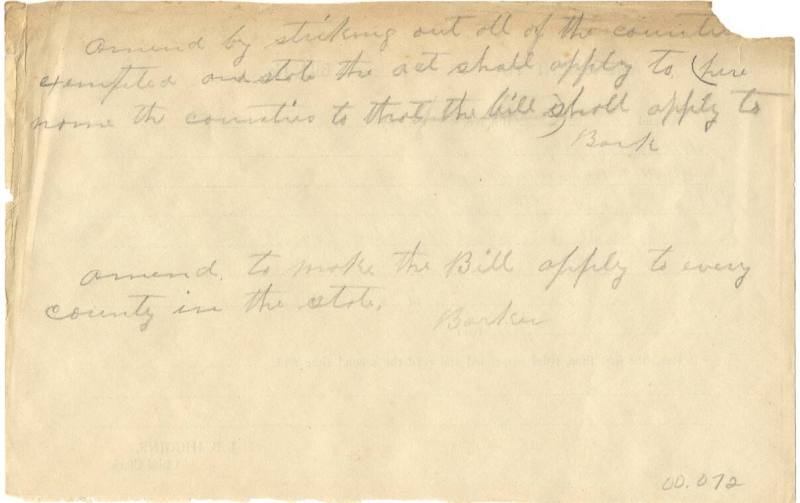 amend by striking out all of the counties
exempted and state the act shall apply to (here
name the counties to that the bill shall apply to)
Bark
amend. to make the Bill apply to every
county in the state.
Barker
00.072